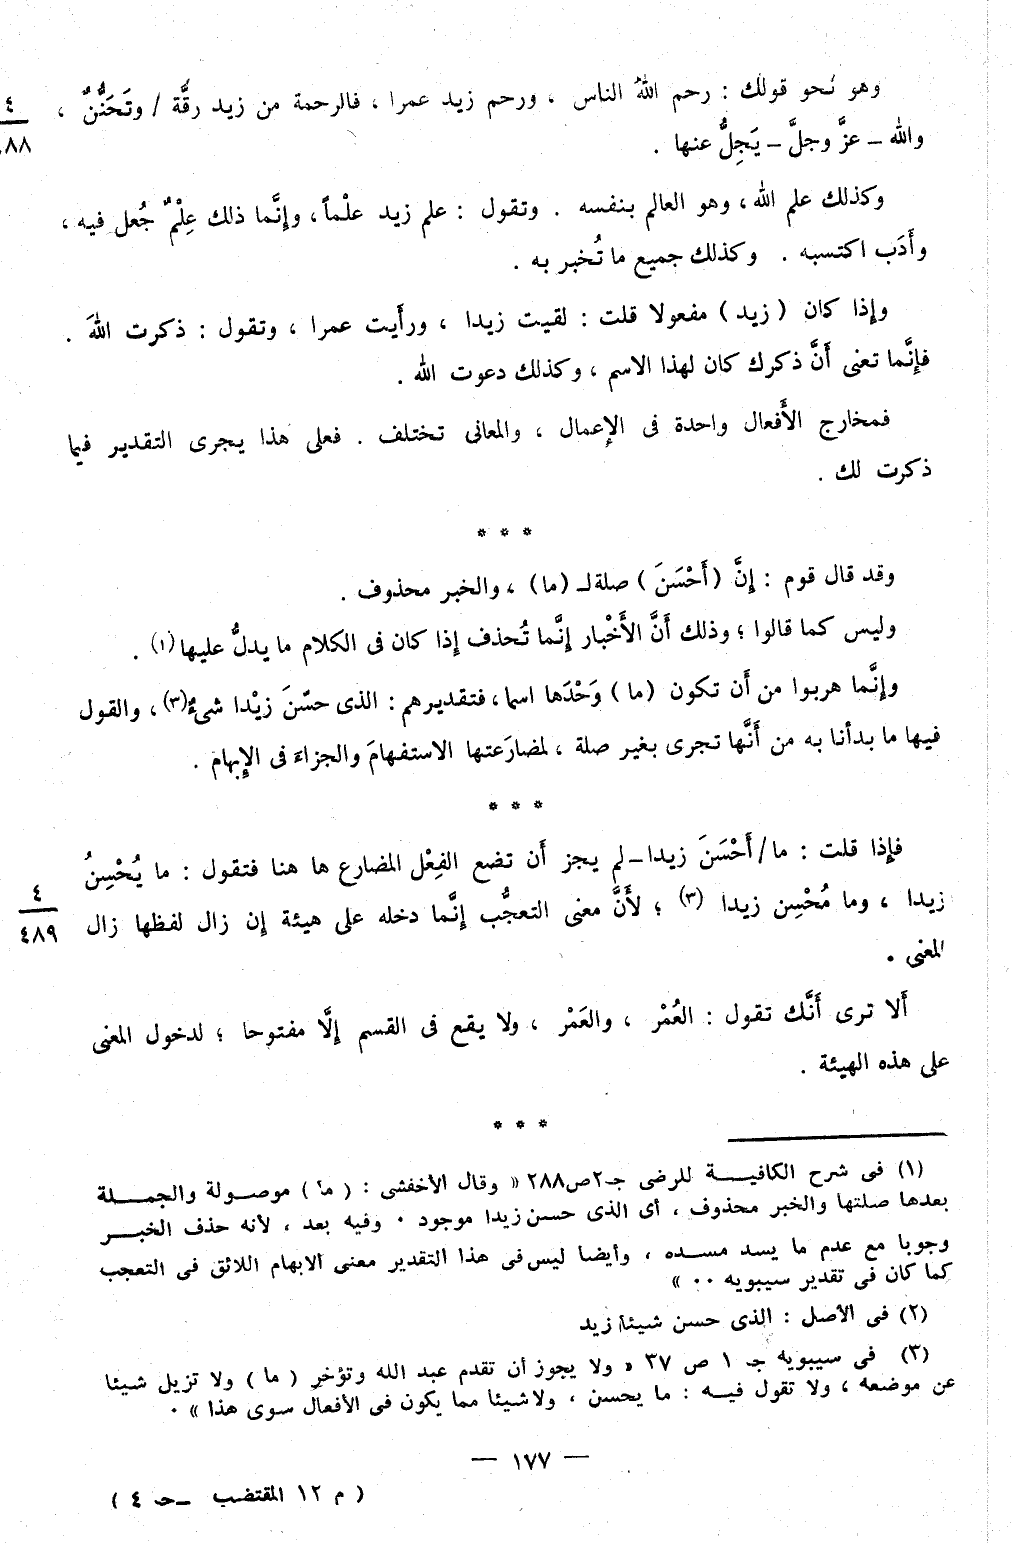 وهو نحو قولك : رحم اللهُ الناس ، ورحم زيد عمرا ، فالرحمة من زيد رقَّة / وتَحَنُّنٌ ،
٤
٤٨٨
والله – عزَّ وجلَّ – يَجِلُّ عنها .
وكذلك علم الله ، وهو العالم بنفسه . وتقول : علم زيد علْماً ، وإنَّما ذلك عِلْمٌ جُعل فيه ،
وأَدَب اكتسبه . وكذلك جميع ما تُخبر به .
وإذا كان ( زيد ) مفعولا قلت : لقيت زيدا ، ورأَيت عمرا ، وتقول : ذكرت اللهَ .
فإنَّما تعنى أَنَّ ذكرك كان لهذا الاسم ، وكذلك دعوت الله .
فمخارج الأَفعال واحدة فى الإِعمال ، والمعانى تختلف . فعلى هذا يجرى التقدير فيما
ذكرت لك .
* * *
وقد قال قوم : إِنَّ ( أَحْسَنَ ) صلة لـ (ما) ، والخبر محذوف .
وليس كما قالوا ؛ وذلك أَنَّ الأَخْبار إِنَّما تُحذف إِذا كان فى الكلام ما يدلُّ عليها (١) .
وإِنَّما هربوا من أَن تكون (ما) وَحْدَها اسما ، فتقديرهم : الذى حسّنَ زيْدا شىءٌ (٣) ، والقول
فيها ما بدأنا به من أَنَّها تجرى بغير صلة ، لمضارَعتها الاستفهامَ والجزاءَ فى الإِبهام .
* * *
فإِذا قلت : ما / أَحْسَنَ زيدا – لم يجز أَن تضع الفِعْل المضارع ها هنا فتقول : ما يُحْسِنُ
٤
٤٨٩
زيدا ، وما مُحْسِن زيدا (٣) ؛ لأَنَّ معنى التعجُّب إِنَّما دخله على هيئة إِن زال لفظها زال
المعنى .
أَلا ترى أَنَّك تقول : العُمْر ، والعَمْر ، ولا يقع فى القسم إِلَّا مفتوحا ؛ لدخول المعنى
على هذه الهيئة .
* * *
(١) فى شرح الكافيـــة للرضى جـ٢ص٢٨٨ « وقال الأخفش : ( ما ) موصــولة والجمـــلة
بعدها صلتها والخبر محذوف ، أى الذى حسن زيدا موجود . وفيه بعد ، لأنه حذف الخبـــر
وجوبا مع عدم ما يسد مســده ، وأيضا ليس فى هذا التقدير معنى الابهام اللائق فى التعجب
كما كان فى تقدير سيبويه .. »
(٢) فى الأصل : الذى حسن شيئا زيد
(٣) فى سيبويه جـ ١ ص ٣٧ « ولا يجوز أن تقدم عبد الله وتؤخر ( ما ) ولا تزيل شيئا
عن موضعه ، ولا تقول فيــه : ما يحسن ، ولا شيئا مما يكون فى الأفعال سوى هذا » .
— ١٧٧ —
( م ١٢ المقتضب – حـ ٤ )